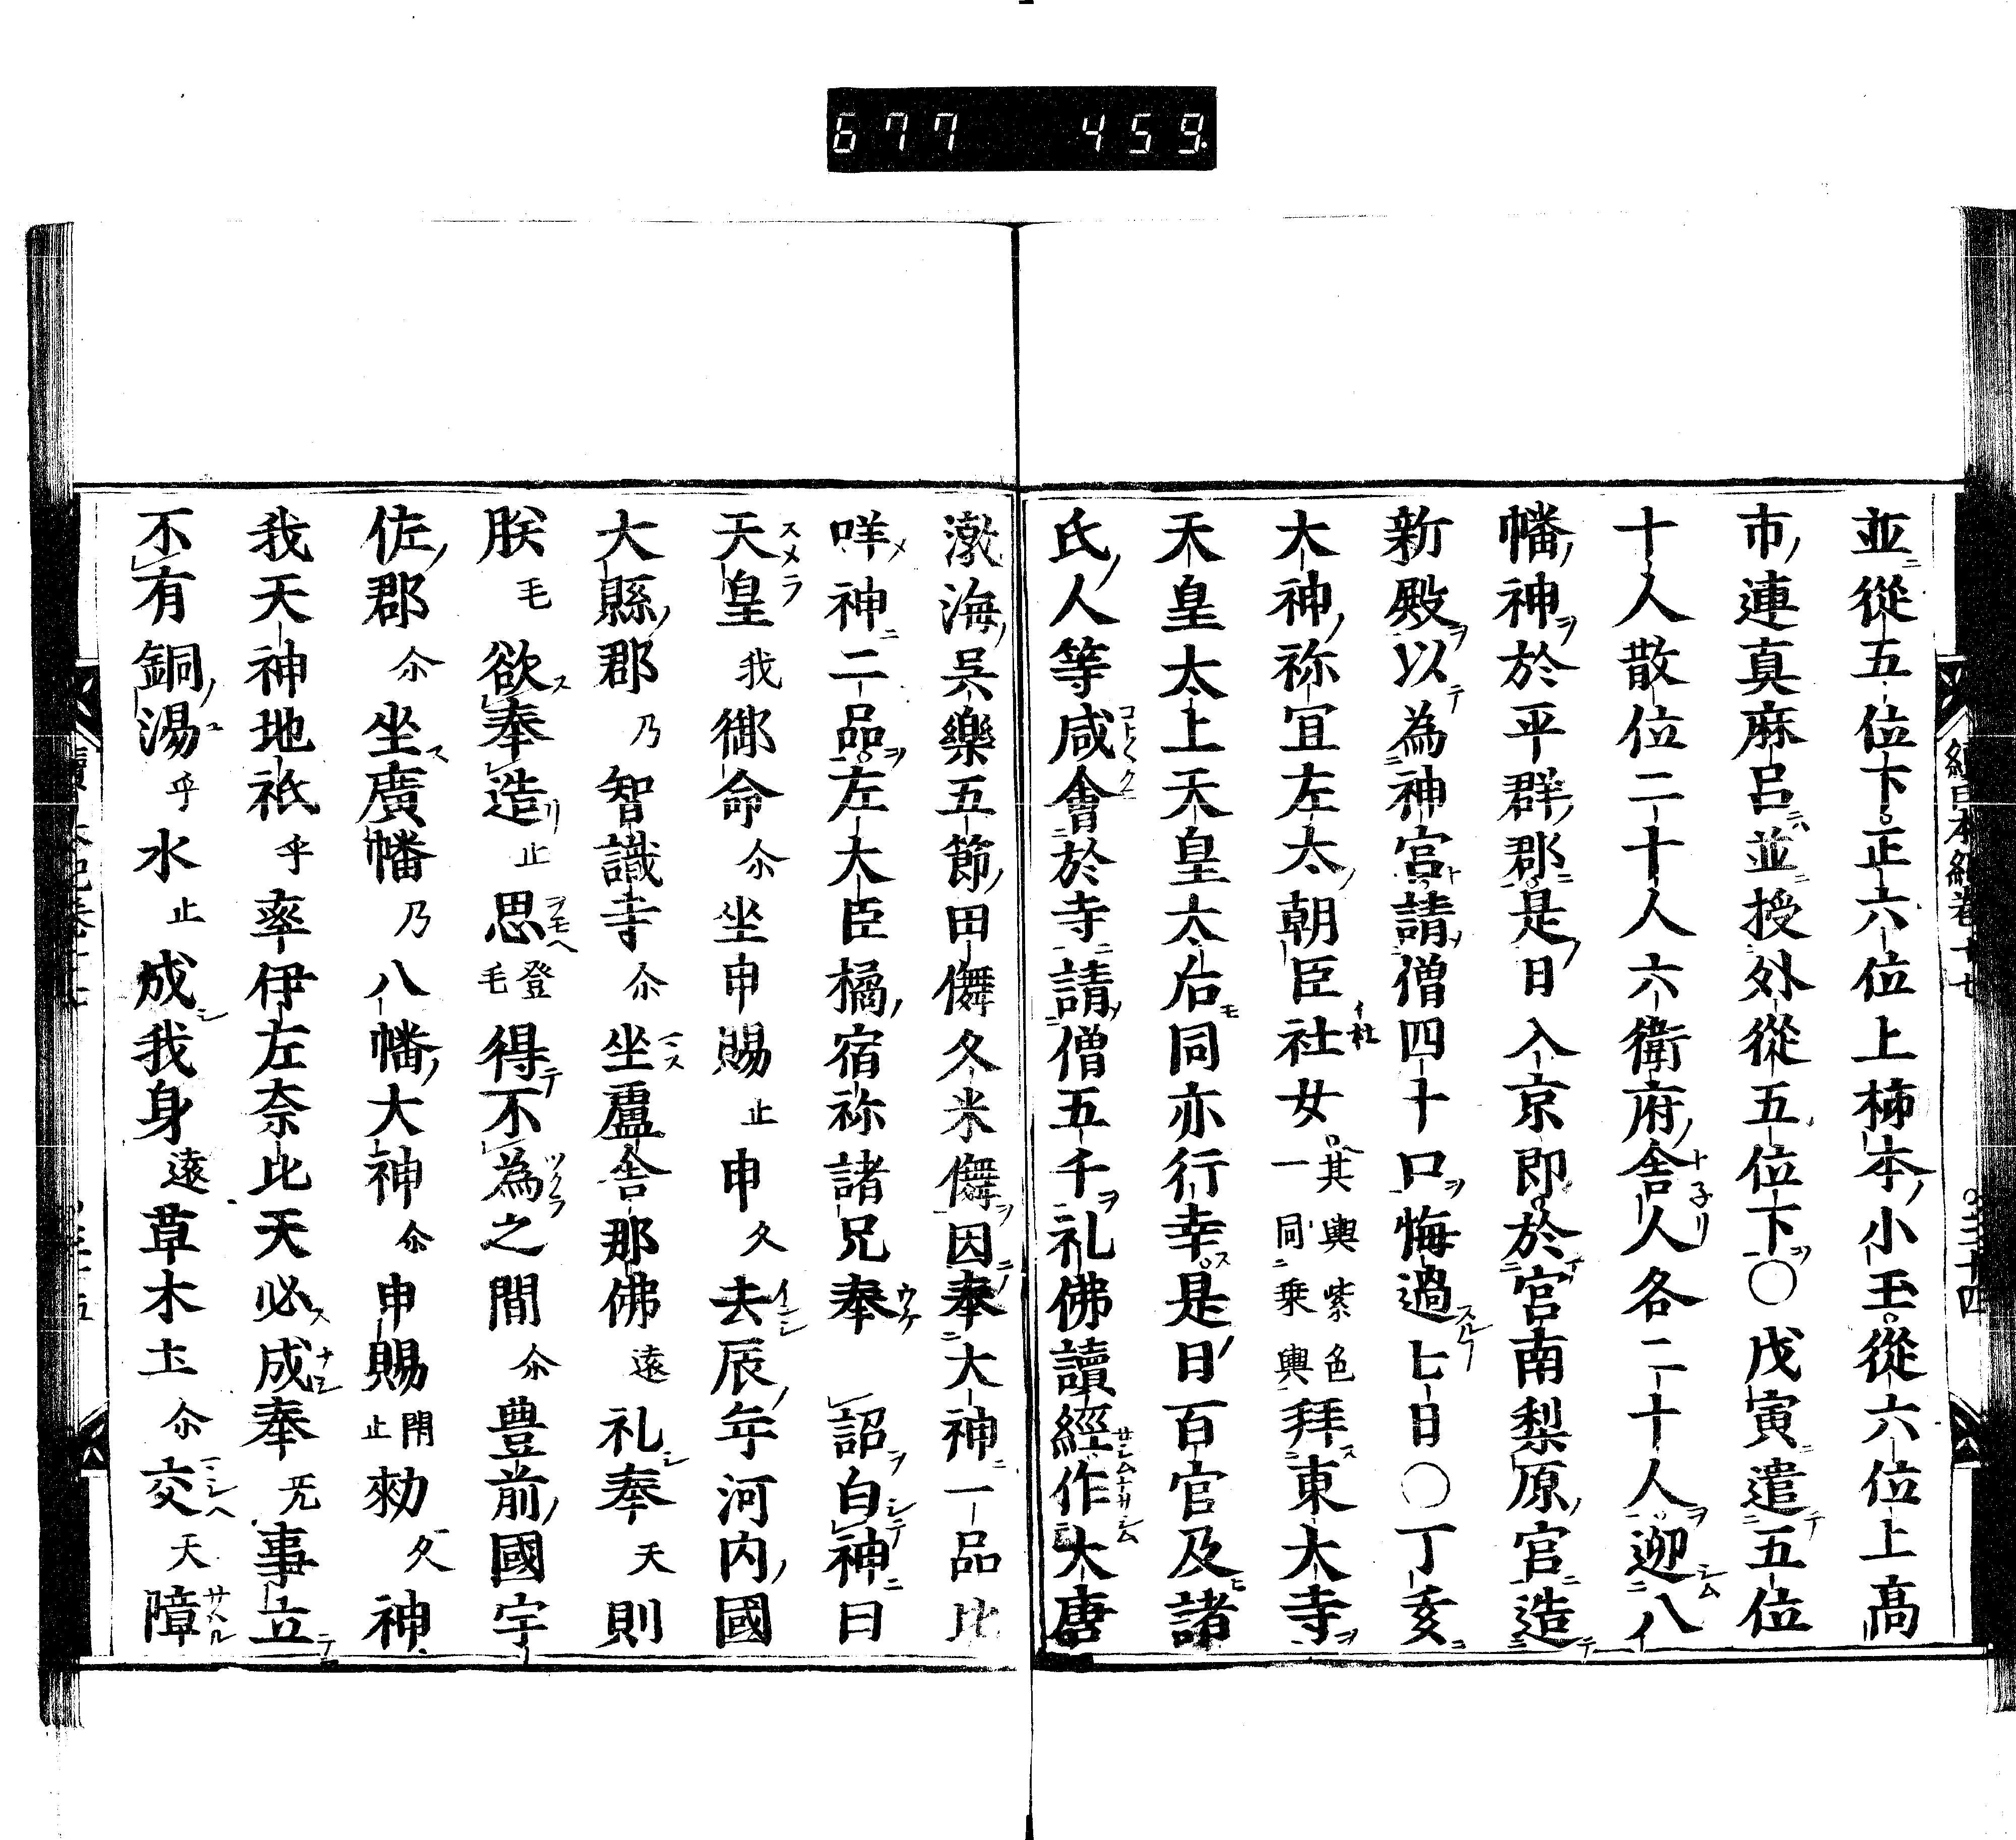 677 459
續日本紀卷十七 三十四
並從五位下正六位上柿本小玉從六位上高
市連真麻呂並授外從五位下〇戊寅遣五位
十人散位二十人六衛府舎人各二十人迎八
幡神於平群郡是日入京即於宮南梨原宮造
新殿以為神宮請僧四十口悔過七日〇丁亥
大神祢宜左太朝臣社女其輿紫色一同乗輿拜東大寺
天皇太上天皇太后同亦行幸是日百官及諸
氏人等咸會於寺請僧五千礼佛讀經作大唐
渤海呉樂五節田儛久米儛因奉大神一品比
咩神二品左大臣橘宿祢諸兄奉 詔白神曰
天皇我御命尒坐申賜止申久去辰年河内國
大縣郡乃智識寺尒坐盧舎那佛遠礼奉天則
朕毛欲奉造止思登毛得不為之間尒豊前國宇
佐郡尒坐廣幡乃八幡大神尒申賜閇止勑久神
我天神地祇乎率伊左奈比天必成奉无事立
不有銅湯乎水止成我身遠草木土尒交天障